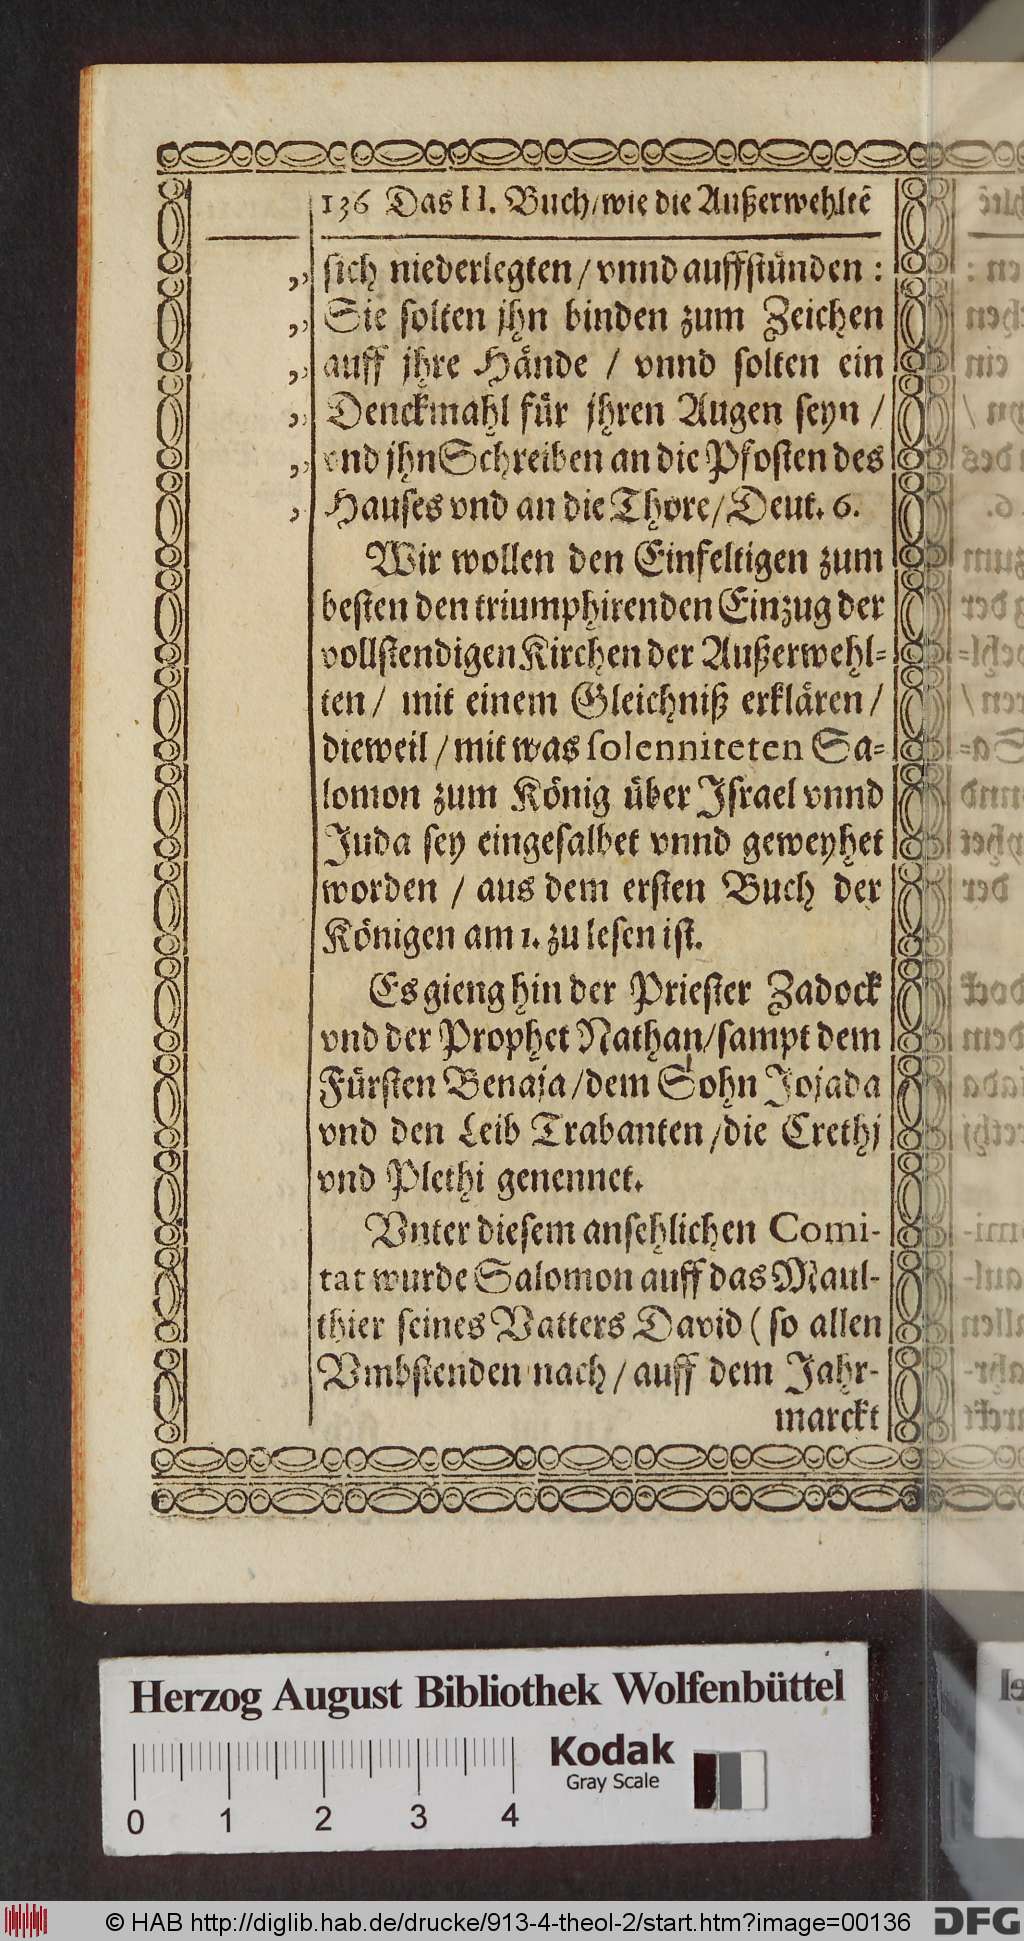 136 Das II. Buch/wie die Außerwehltẽ
„ sich niederlegten / vnnd auffstünden :
„ Sie solten jhn binden zum Zeichen
„ auff jhre Hånde / vnnd solten ein
„ Denckmahl für jhren Augen seyn /
„ vnd jhn Schreiben an die Pfosten des
, Hauses vnd an die Thore/Deut. 6.
Wir wollen den Einfeltigen zum
besten den triumphirenden Einzug der
vollstendigen Kirchen der Außerwehl=
ten / mit einem Gleichniß erklären /
dieweil / mit was solenniteten Sa=
lomon zum König über Israel vnnd
Juda sey eingesalbet vnnd geweyhet
worden / aus dem ersten Buch der
Königen am 1. zu lesen ist.
Es gieng hin der Priester Zadock
vnd der Prophet Nathan/sampt dem
Fürsten Benaja/dem Sohn Jojada
vnd den Leib Trabanten/die Crethj
vnd Plethi genennet.
Vnter diesem ansehlichen Comi-
tat wurde Salomon auff das Maul-
thier seines Vatters David (so allen
Vmbstenden nach / auff dem Jahr-
marckt
Herzog August Bibliothek Wolfenbüttel
Kodak
Gray Scale
0 1 2 3 4
© HAB http://diglib.hab.de/drucke/913-4-theol-2/start.htm?image=00136
DFG